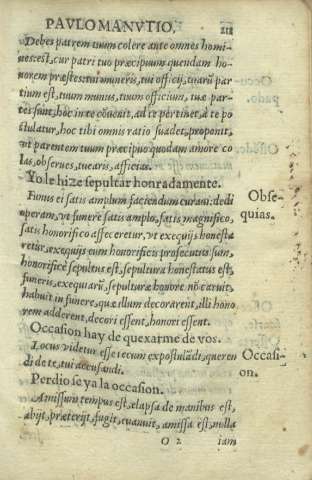 PAVLO MANVTIO. 212
Debes patrem tuum colere ante omnes homi-
nes: est, cur patri tuo præcipuum quendam ho-
norem præstes: tui muneris, tui officij, tuarũ par
tium est, tuum munus, tuum officium, tuæ par-
tes sunt, hoc in te cõuenit, ad te pertinet, à te po
stulatur, hoc tibi omnis ratio suadet, proponit,
vt parentem tuum præcipuo quodam amore co
las, obserues, tuearis, afficias.
Yo le hize sepultar honradamente.
Funus ei satis amplum faciendum curaui: dedi
Obse-
operam, vt funere satis amplo, satis magnifico,
quias.
satis honorifico afficeretur, vt exequijs honesta
retur, exequijs eum honorificis prosecutus sum,
honorificè sepultus est, sepultura honestatus est,
funeris, exequiarũ, sepulturæ honore nõ caruit,
habuit in funere, quæ illum decorarent, illi hono
rem adderent, decori essent, honori essent.
Occasion hay de quexarme de vos.
Locus videtur esse tecum expostulãdi, queren
Occasi-
di de te, tui accusandi.
on.
Perdiose ya la occasion.
Amissum tempus est, elapsa de manibus est,
abijt, præterijt, fugit, euanuit, amissa est, nulla
O 2 iam